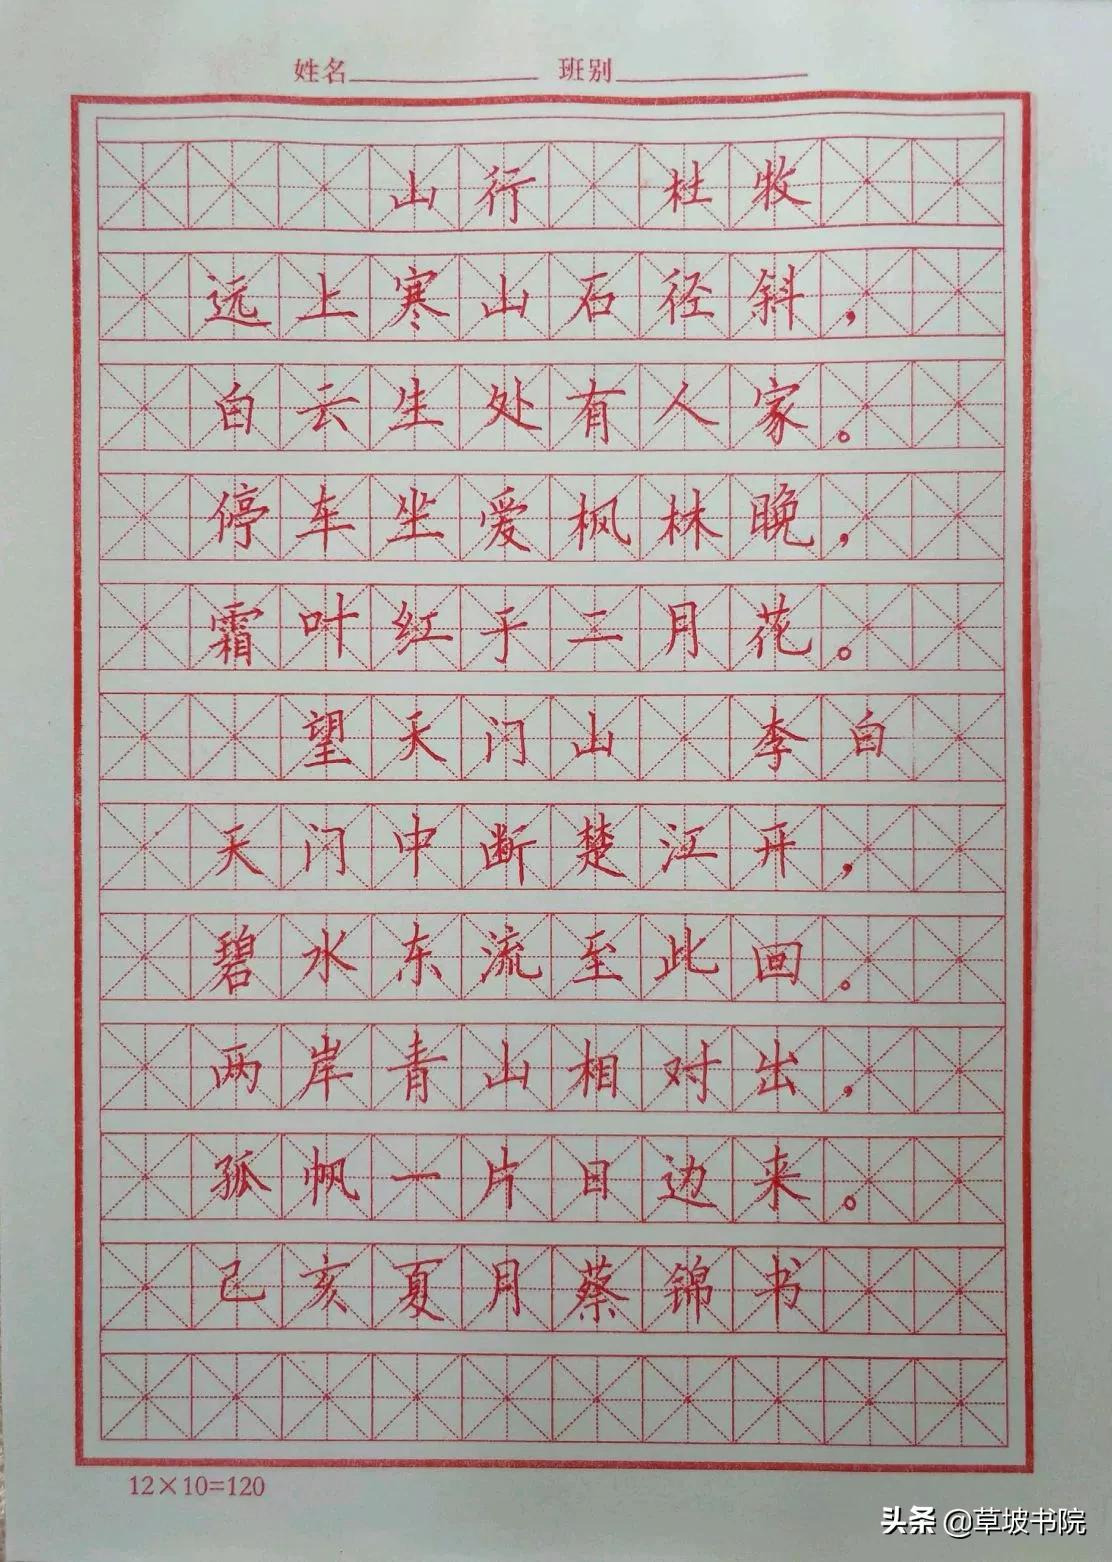 姓名 班别
山行 杜牧
远上寒山石径斜，
白云生处有人家。
停车坐爱枫林晚，
霜叶红于二月花。
望天门山 李白
天门中断楚江开，
碧水东流至此回。
两岸青山相对出，
孤帆一片日边来。
己亥夏月蔡锦书
12×10=120
头条 @草坡书院